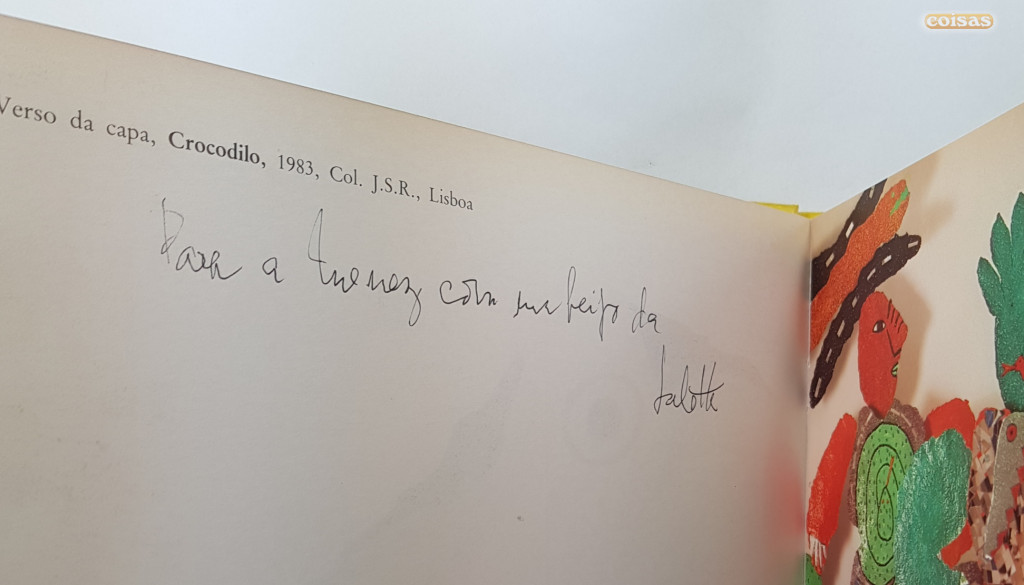 coisas
Verso da capa, Crocodilo, 1983, Col. J.S.R., Lisboa
Para a Menez com um beijo da